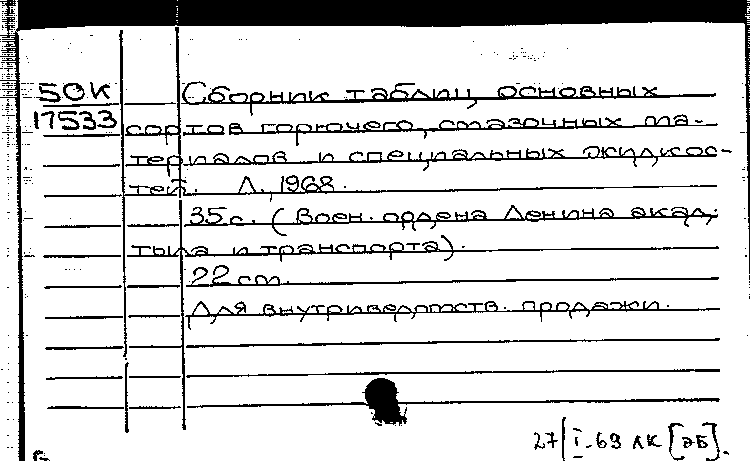 50К
17533
Сборник таблиц основных
сортов горючего, смазочных ма-
териалов и специальных жидкос-
тей. Л., 1968.
35с. (Воен. ордена Ленина акад.
тыла и транспорта).
22 см.
Для внутриведомств. продажи.
27/I-69 ЛК [ЭБ].